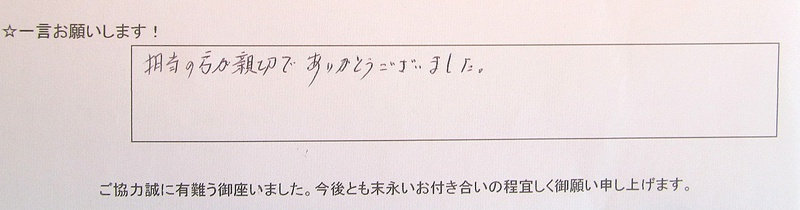 ☆一言お願いします！
担当の方が親切で ありがとうございました。
ご協力誠に有難う御座いました。今後とも末永いお付き合いの程宜しく御願い申し上げます。